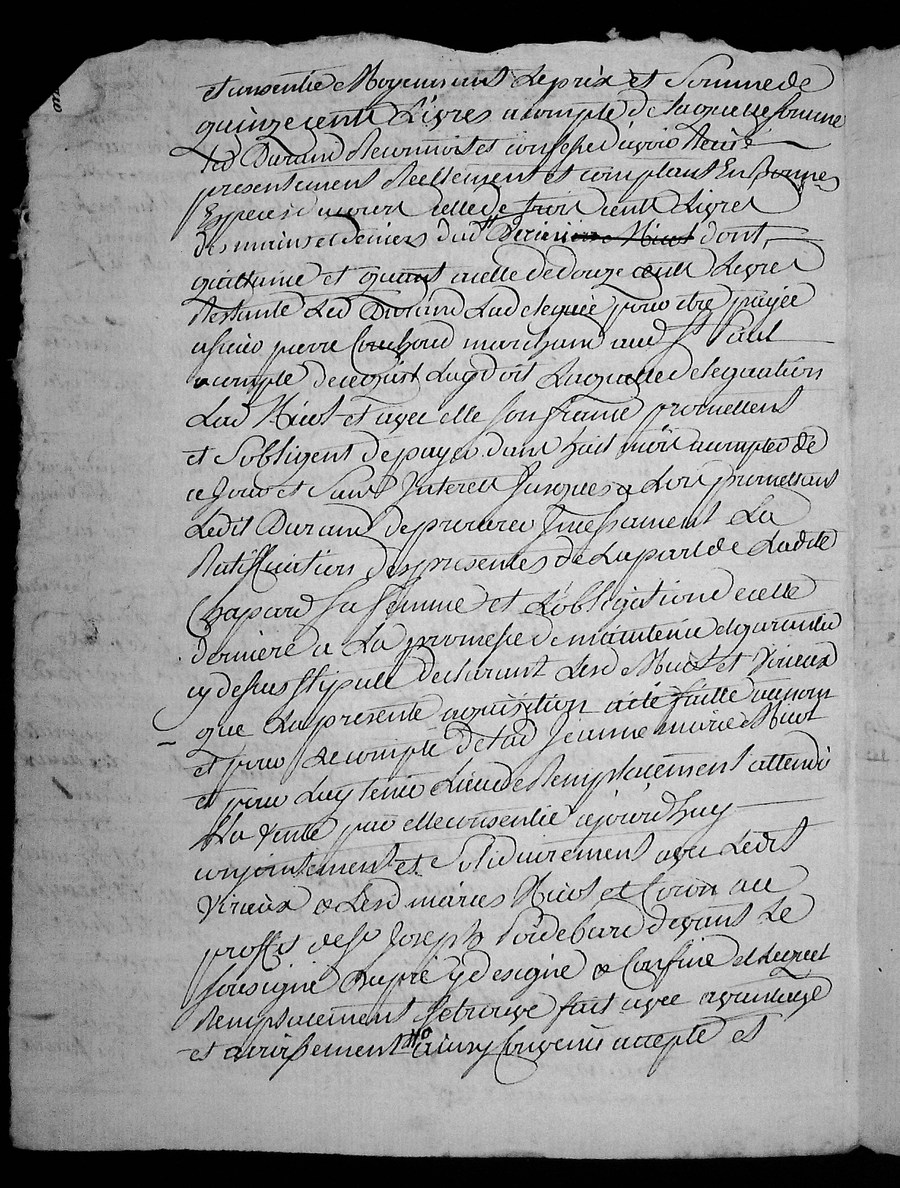 et consentie Moyennant Le prix et Somme de
quinze cent Livres acompte de Laquelle somme
Led Durand Reconnoit et confesse d'avoir Receü
presentement Reellement et comptant En Bonnes
Especes du cours celle de trois cent Livres
des mains et deniers dud dont
quittance et quant a celle de douze cent Livres
Restante Led Durand Lad deleguée pour être payée
a sieur pierre Couhoud marchand aud St Paul
acompte de ce quil Luy doit Laquelle delegation
Lad Nicot et avec elle son frame promettent
et sobligent de payer dans huit mois acompter de
ce jour et Sans Interett Jusques a Lors promettant
Ledit Durand de procurer Incessament La
Ratiffication des presentes de La part de Ladite
Chapard sa femme et L'obligation d'icelle
derniere a La promesse de maintenir et garantir
cy dessus stipulé declarant Lesd Nicot et Virieux
que La presente aquisition a ete faitte au nom
et pour Le compte de Lad Jeanne marie Nicot
et pour Luy tenir Lieu de Remplacement attendû
La vente par elle consentie cejourd'huy
conjointement et Solidairement avec Ledit
Virieux & Lesd mariés Nicot et Coron au
proffit de Sr Joseph Poidebard devant Le
sousigné du pré y designé & Confiné et Lequel
Remplacement se trouve fait avec avantage
et ainsy Convenu accepté et